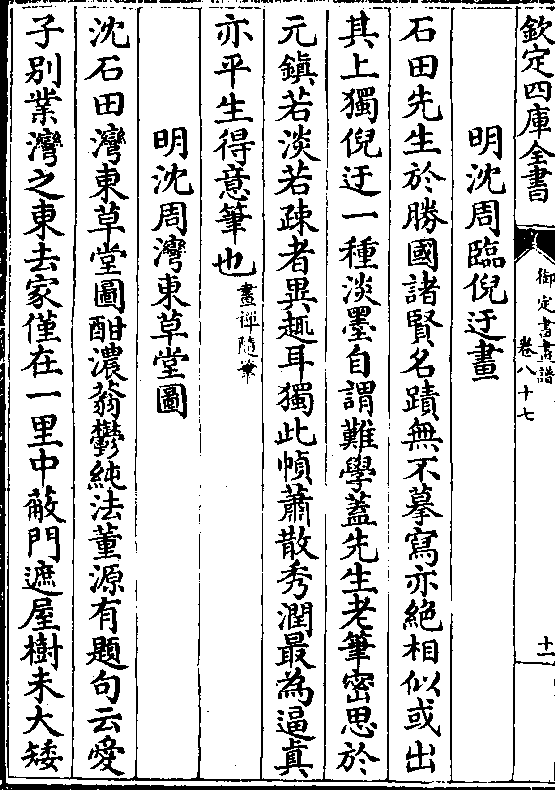 欽定四庫全書
御定書畫譜
卷八十七
十一
明沈周臨倪迂畫
石田先生於勝國諸賢名蹟無不摹寫亦絶相似或出
其上獨倪迂一種淡墨自謂難學蓋先生老筆密思於
元鎮若淡若疎者異趣耳獨此幀蕭散秀潤最為逼真
亦平生得意筆也畫禪隨筆
明沈周灣東草堂圖
沈石田灣東草堂圖酣濃蓊鬱純法董源有題句云愛
子别業灣之東去家僅在一里中蔽門遮屋樹未大矮